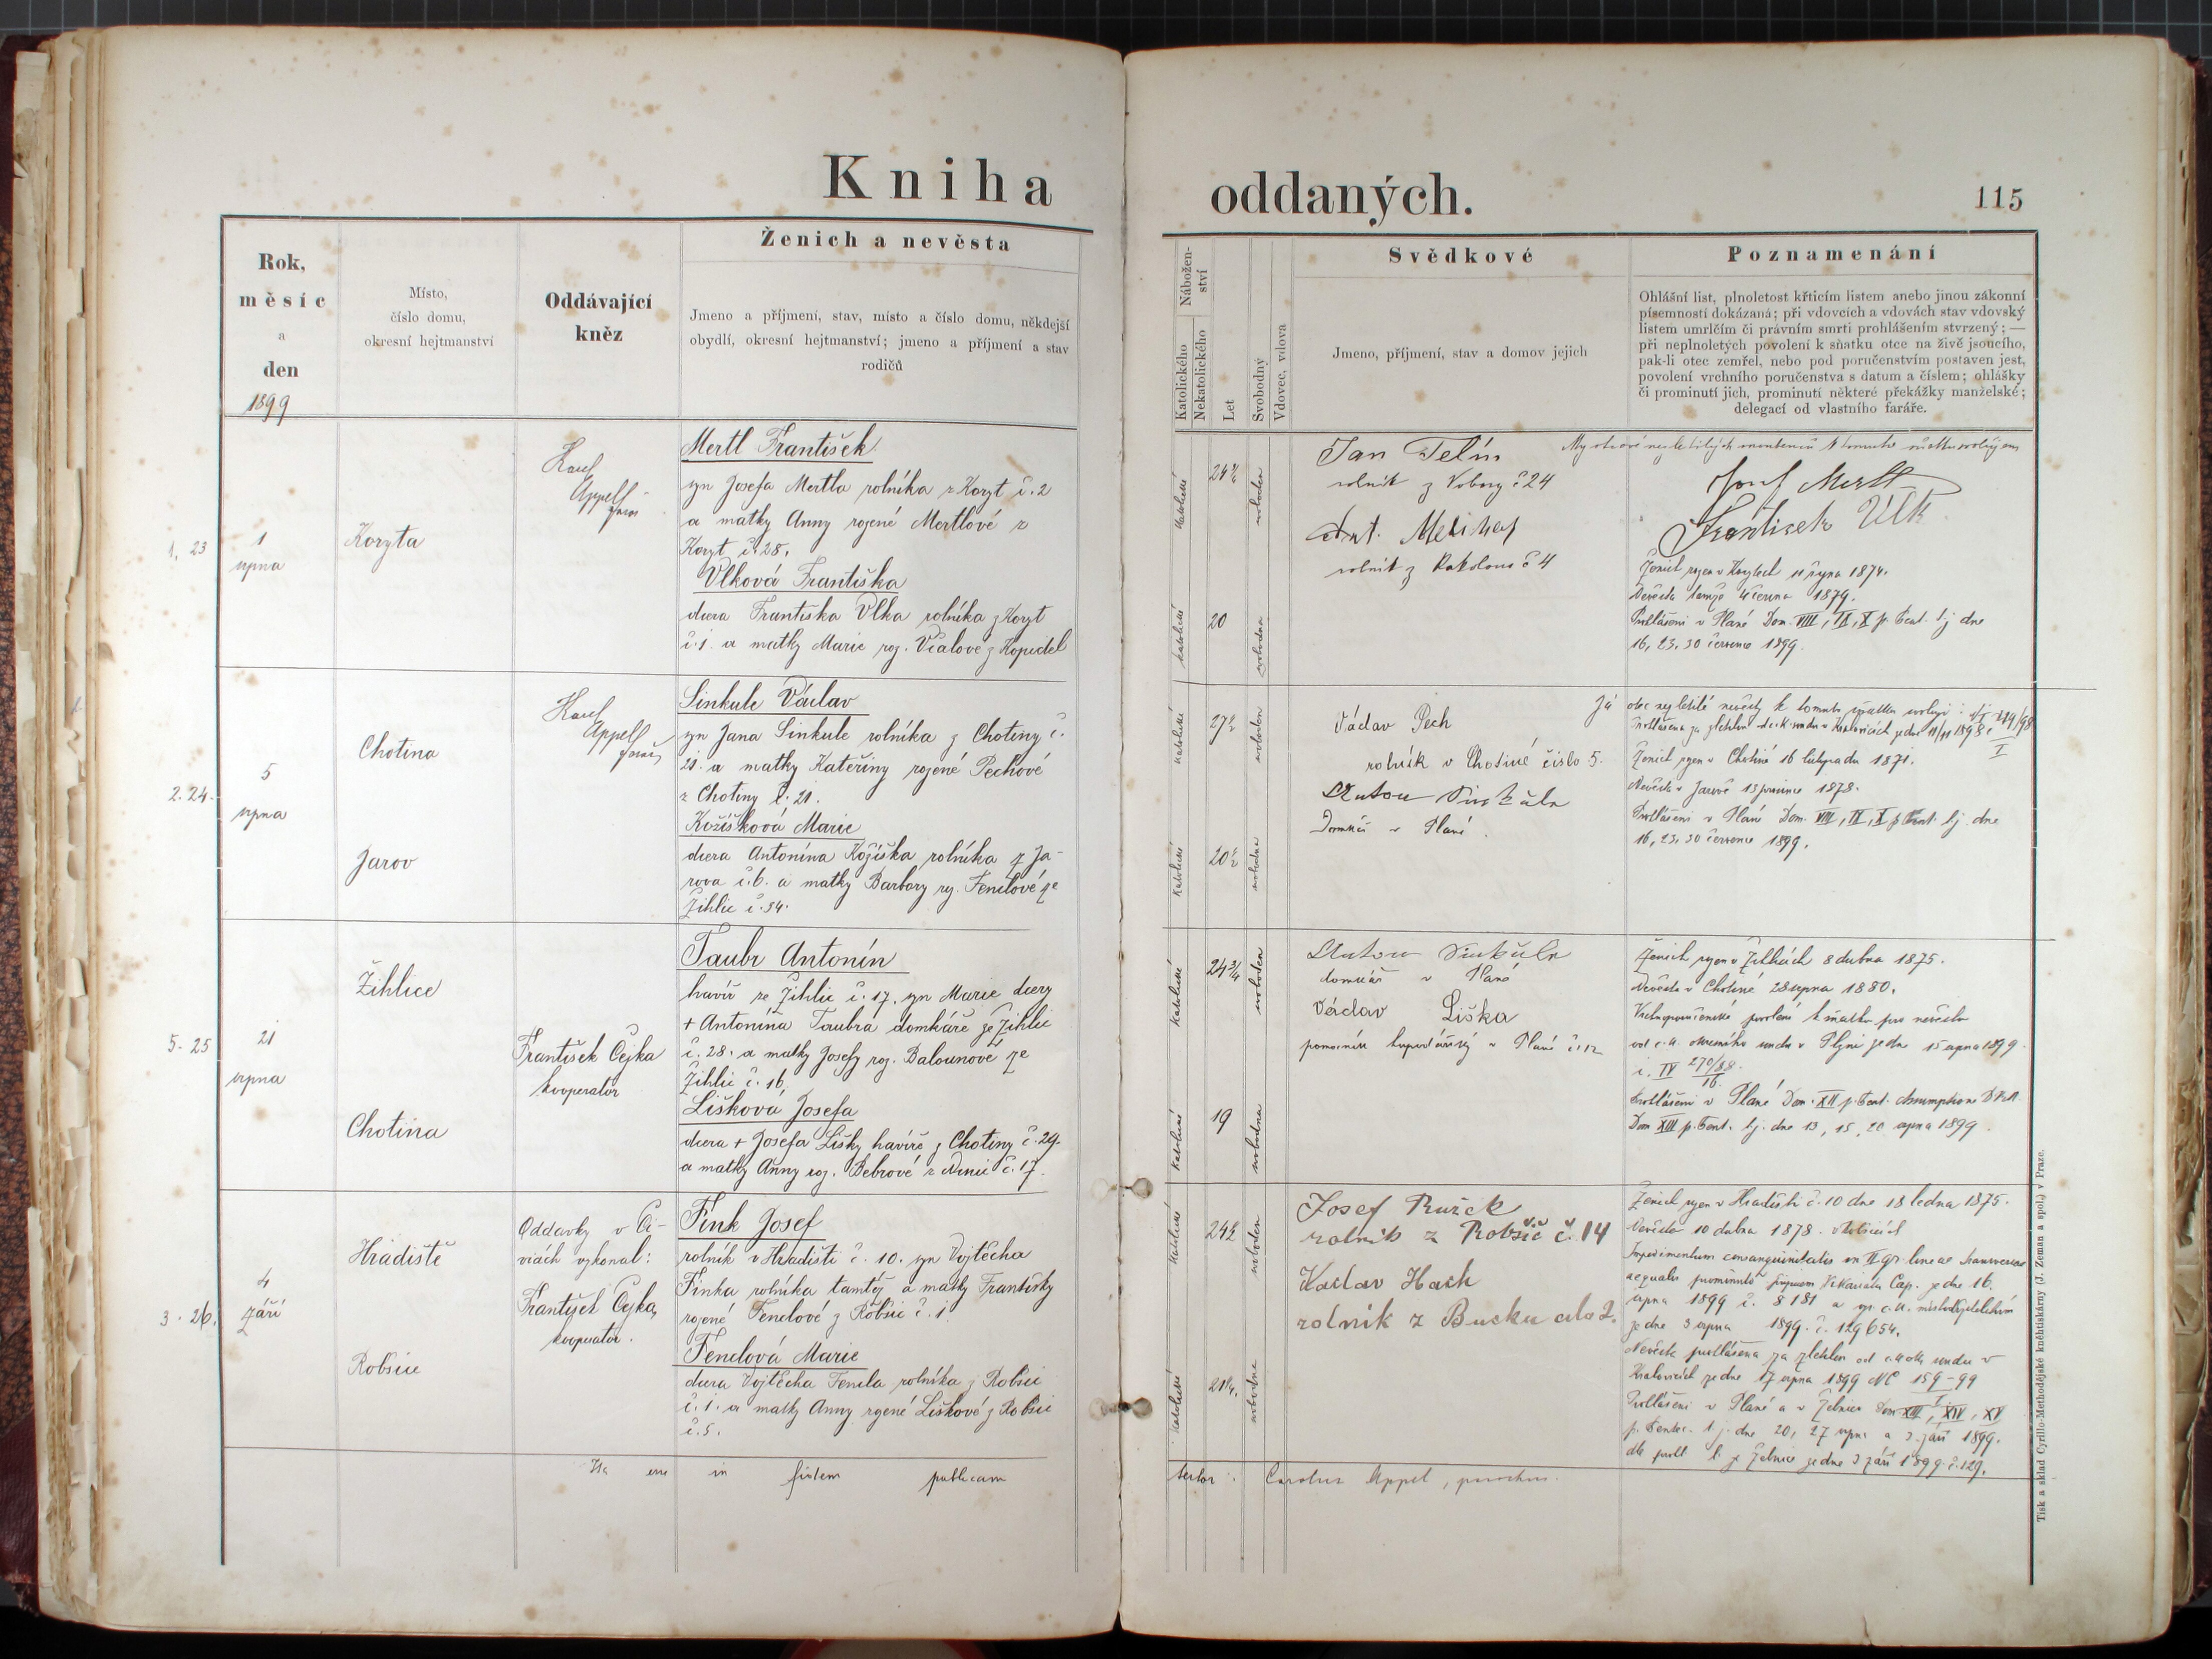 Kniha
oddaných.
115
Rok,
měsíc
a
den
1899
Místo,
číslo domu,
okresní hejtmanství
Oddávající
kněz
Ženich a nevěsta
Jmeno a příjmení, stav, místo a číslo domu, někdejší
obydlí, okresní hejtmanství; jmeno a příjmení a stav
rodičů
Nábožen-
ství
Katolického
Nekatolického
Let
Svobodný
Vdovec, vdova
Svědkové
Jmeno, příjmení, stav a domov jejich
Poznamenání
Ohlášní list, plnoletost křticím listem anebo jinou zákonní
písemností dokázaná; při vdovcích a vdovách stav vdovský
listem umrlčím či právním smrti prohlášením stvrzený; —
při neplnoletých povolení k sňatku otce na živě jsoucího,
pak-li otec zemřel, nebo pod poručenstvím postaven jest,
povolení vrchního poručenstva s datum a číslem; ohlášky
či prominutí jich, prominutí některé překážky manželské;
delegací od vlastního faráře.
1. 23
1
srpna
Koryta
Karel
Appell
farář
Mertl František
syn Josefa Mertla rolníka z Koryt č. 2
a matky Anny rozené Mertlové z
Koryt č. 28.
Vlková Františka
dcera Františka Vlka rolníka z Koryt
č. 1. a matky Marie roz. Včalové z Kopidel
katolické
24½
svoboden
katolické
20
svobodna
Jan Telín
rolník z Vobory č 24
Ant.
rolník z Kokolous č 4
k tomuto sňatku svolujem
Josef Mertl
František Vlk
Ženich rozen v Korytech 11 října 1874.
Nevěsta tamže 4 června 1879.
Prohlášeni v Plané Dom. VIII, IX, X p. Pent. t.j. dne
16, 23, 30 července 1899.
2. 24.
5
srpna
Chotina
Jarov
Karel
Appell
farář
Sinkule Václav
syn Jana Sinkule rolníka z Chotiny č.
21. a matky Kateřiny rozené Pechové
z Chotiny č. 21.
Kožíšková Marie
dcera Antonína Kožíška rolníka z Ja-
rova č. 6. a matky Barbory roz. Fenclové ze
Žihlic č. 34.
katolické
27½
svoboden
katolické
20½
svobodna
Václav Pech
rolník v Chotiné číslo 5.
Anton Sinkule
Domkář v Plané.
Já otec nezletilé nevěsty k tomuto sňatku svoluji
prohlášena za zletilou v Kralovicích ze dne 11/11 1898 č I 219/98
I
Ženich rozen v Chotiné 16 listopadu 1871.
Nevěsta v Jarově 13 prosince 1878.
Prohlášeni v Plané Dom. VIII, IX, X p. Pent. t.j. dne
16, 23, 30 července 1899.
5. 25
21
srpna
Žihlice
Chotina
František Čejka
kooperator
Taubr Antonín
havíř ze Žihlic č. 17, syn Marie dcery
+ Antonína Taubra domkáře ze Žihlic
č. 28. a matky Josefy roz. Balounové ze
Žihlic č. 16.
Lišková Josefa
dcera + Josefa Lišky havíře z Chotiny č. 29.
a matky Anny roz. Bebrové z Nynic č. 17.
katolické
24¾
svoboden
katolické
19
svobodna
Anton Sinkule
domkář v Plané
Václav Liška
pomocník hospodářský v Plané č. 12
Ženich rozen v Žihlicích 8 dubna 1875.
Nevěsta v Chotiné 28 srpna 1880.
Vrchnoporučenské povolení k sňatku pro nevěstu
od c. k. okresního soudu v Plzni ze dne 15 srpna 1899
č. IV 270/88
16.
Prohlášeni v Plané Dom. XII p. Pent. Assumptione B.V.M.
Dom XIII p. Pent. t.j. dne 13, 15, 20 srpna 1899.
3. 26.
4
září
Hradiště
Robšice
Oddavky v Ci-
vicích vykonal:
František Čejka,
kooperator.
Fink Josef
rolník v Hradišti č. 10. syn Vojtěcha
Finka rolníka tamtéž a matky Františky
rozené Fenclové z Robšic č. 1.
Fenclová Marie
dcera Vojtěcha Fencla rolníka z Robšic
č. 1. a matky Anny rozené Liškové z Robšic
č. 5.
katolické
24½
svoboden
katolické
21¼
svobodna
Josef Ružek
rolnik z Robšič č. 14
Kaclav Hach
rolnik z Bucku čslo 2.
Ženich rozen v Hradišti č. 10 dne 18 ledna 1875.
Nevěsta 10 dubna 1878. v Robšicích
Impedimentum consanguinitatis in II gr. lineae transversae
aequalis prominuto Cap. ze dne 16.
srpna 1899 č. 8181 a c. k. místodržitelstvím
ze dne 3 srpna 1899. č. 129654.
Nevěsta prohlášena za zletilou od c. k. okr. soudu v
Kralovicích ze dne 17 srpna 1899 NC 159-99
Prohlášeni v Plané a v Žebnici Dom XIII, XIV, XV
p. Pentec. t.j. dne 20, 27 srpna a 3 září 1899.
dle prohl. l. z Žebnice ze dne 3 září 1899. č. 129.
Ita esse in fidem publicam
testor: Carolus Appel, parochus.
Tisk a sklad Cyrillo-Methodějské knihtiskárny (J. Zeman a spol.) v Praze.